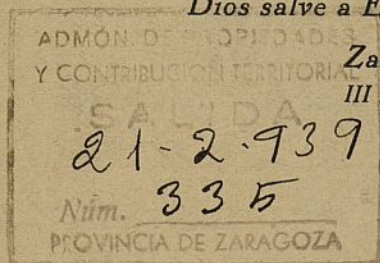 Dios salve a E
ADMÓN. DE PROPIEDADES
Za
Y CONTRIBUCIÓN TERRITORIAL
III
SALIDA
21-2-939
Núm. 335
PROVINCIA DE ZARAGOZA